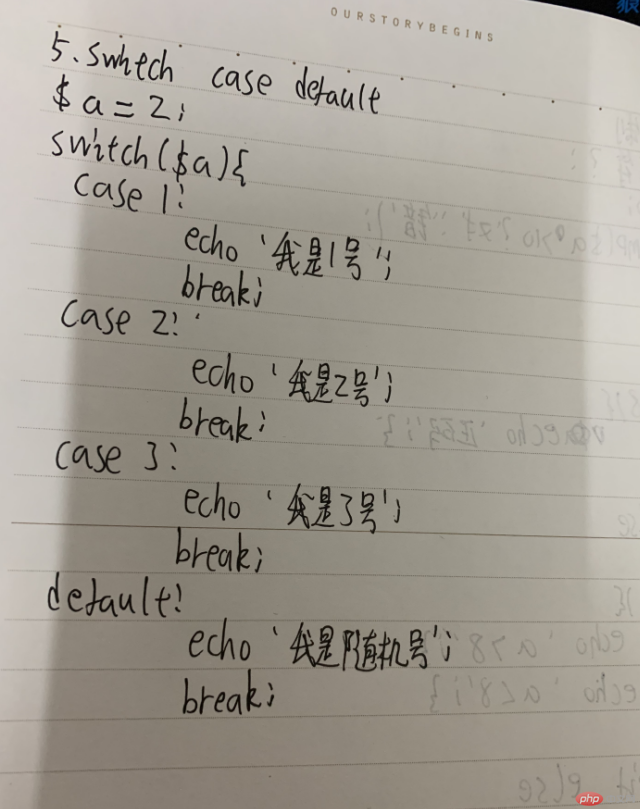 OURSTORYBEGINS
5. swhtch case default
$ a = 2;
switch($a){
case 1:
echo '我是1号';
break;
case 2:
echo '我是2号';
break;
case 3:
echo '我是3号';
break;
default:
echo '我是随机号';
break;
php